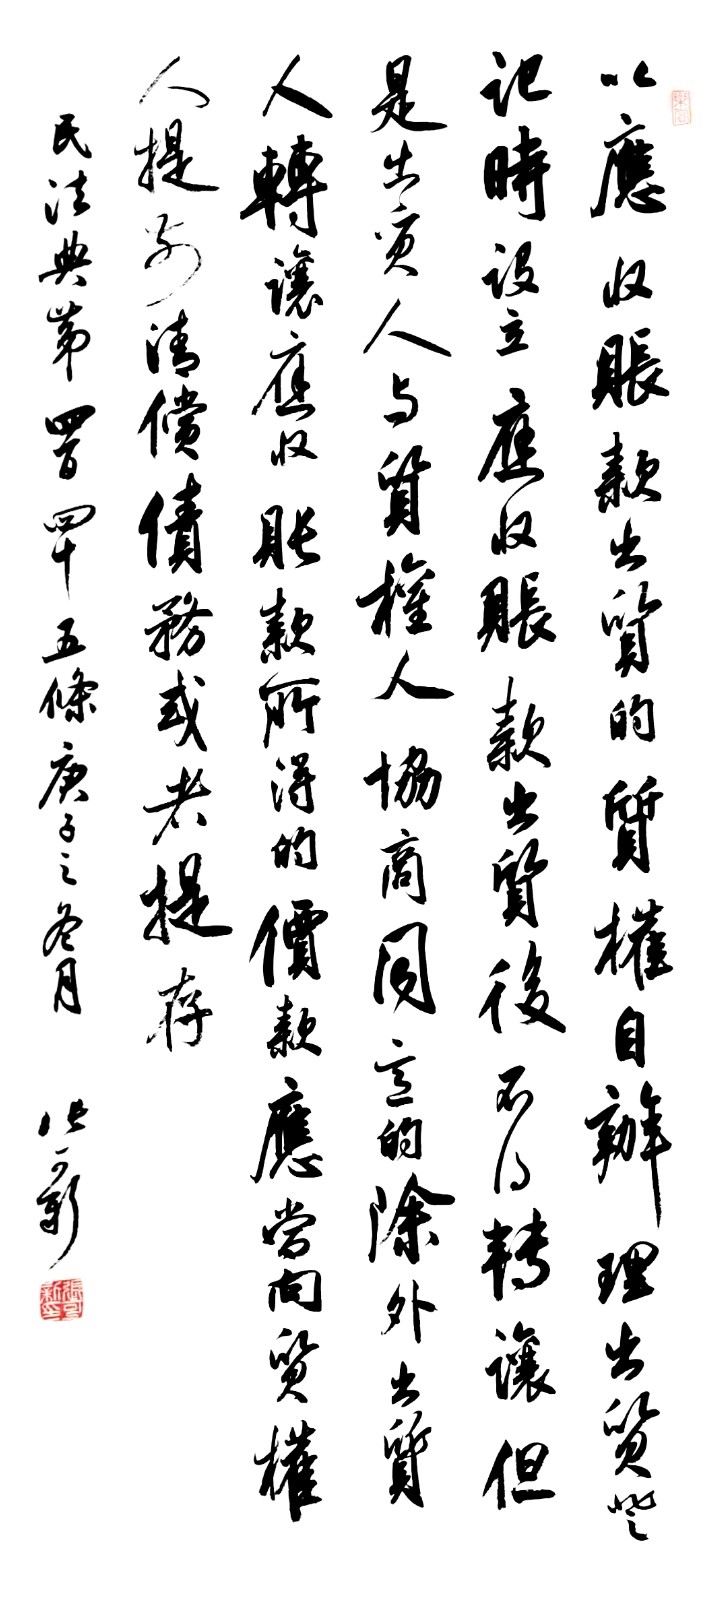 以應收賬款出質的質權自辦理出質登
記時設立應收賬款出質後不得轉讓但
是出质人与質權人協商同意的除外出質
人轉讓應收账款所得的價款應當向质權
人提前清償債務或者提存
民法典第四百四十五條庚子之冬月
张